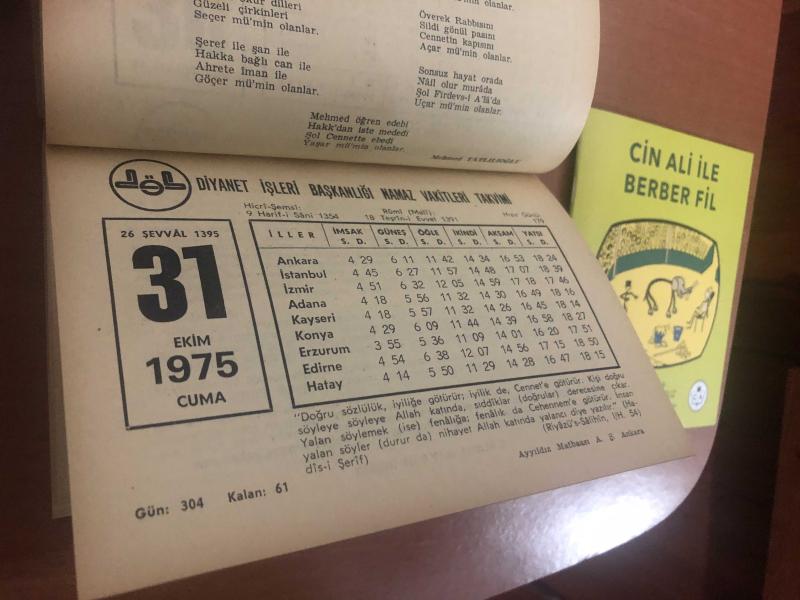 dilleri
Güzeli çirkinleri
Seçer mü'min olanlar.
Şeref ile şan ile
Hakka bağlı can ile
Ahrete iman ile
Göçer mü'min olanlar.
mü'min olanlar.
Överek Rabbısını
Sildi gönül pasını
Cennetin kapısını
Açar mü'min olanlar.
Sonsuz hayat orada
Nâil olur murâda
Şol Firdevs-i A'lâ'da
Uçar mü'min olanlar.
Mehmed öğren edebi
Hakk'dan iste mededi
Şol Cennette ebedi
Yaşar mü'min olanlar.
Mehmed
DİYANET İŞLERİ BAŞKANLIĞI NAMAZ VAKİTLERİ TAKVİMİ
Hicrî-Şemsî: Rûmî (Malî): Hızır Günü:
9 Harif-i Sâni 1354 18 Teşrîn-i Evvel 1391 179
26 ŞEVVÂL 1395
31
EKİM
1975
CUMA
İLLER İMSAK GÜNEŞ ÖĞLE İKİNDİ AKŞAM YATSI
S. D. S. D. S. D. S. D. S. D. S. D.
Ankara 4 29 6 11 11 42 14 34 16 53 18 24
İstanbul 4 45 6 27 11 57 14 48 17 07 18 39
İzmir 4 51 6 32 12 05 14 59 17 18 17 46
Adana 4 18 5 56 11 32 14 30 16 49 18 16
Kayseri 4 18 5 57 11 32 14 26 16 45 18 14
Konya 4 29 6 09 11 44 14 39 16 58 18 27
Erzurum 3 55 5 36 11 09 14 01 16 20 17 51
Edirne 4 54 6 38 12 07 14 56 17 15 18 50
Hatay 4 14 5 50 11 29 14 28 16 47 18 15
"Doğru sözlülük, iyiliğe götürür; iyilik de, Cennet'e götürür. Kişi doğru
söyleye söyleye Allah katında, sıddîklar (doğrular) derecesine çıkar.
Yalan söylemek (ise) fenâlığa; fenâlık da Cehennem'e götürür. İnsan
yalan söyler (durur da) nihayet Allah katında yalancı diye yazılır." (Ha-
dîs-i Şerîf) (Riyâzü's-Sâlihîn, IH. 54)
Ayyıldız Matbaası A. Ş. Ankara
Gün: 304 Kalan: 61
CİN ALİ İLE
BERBER FİL